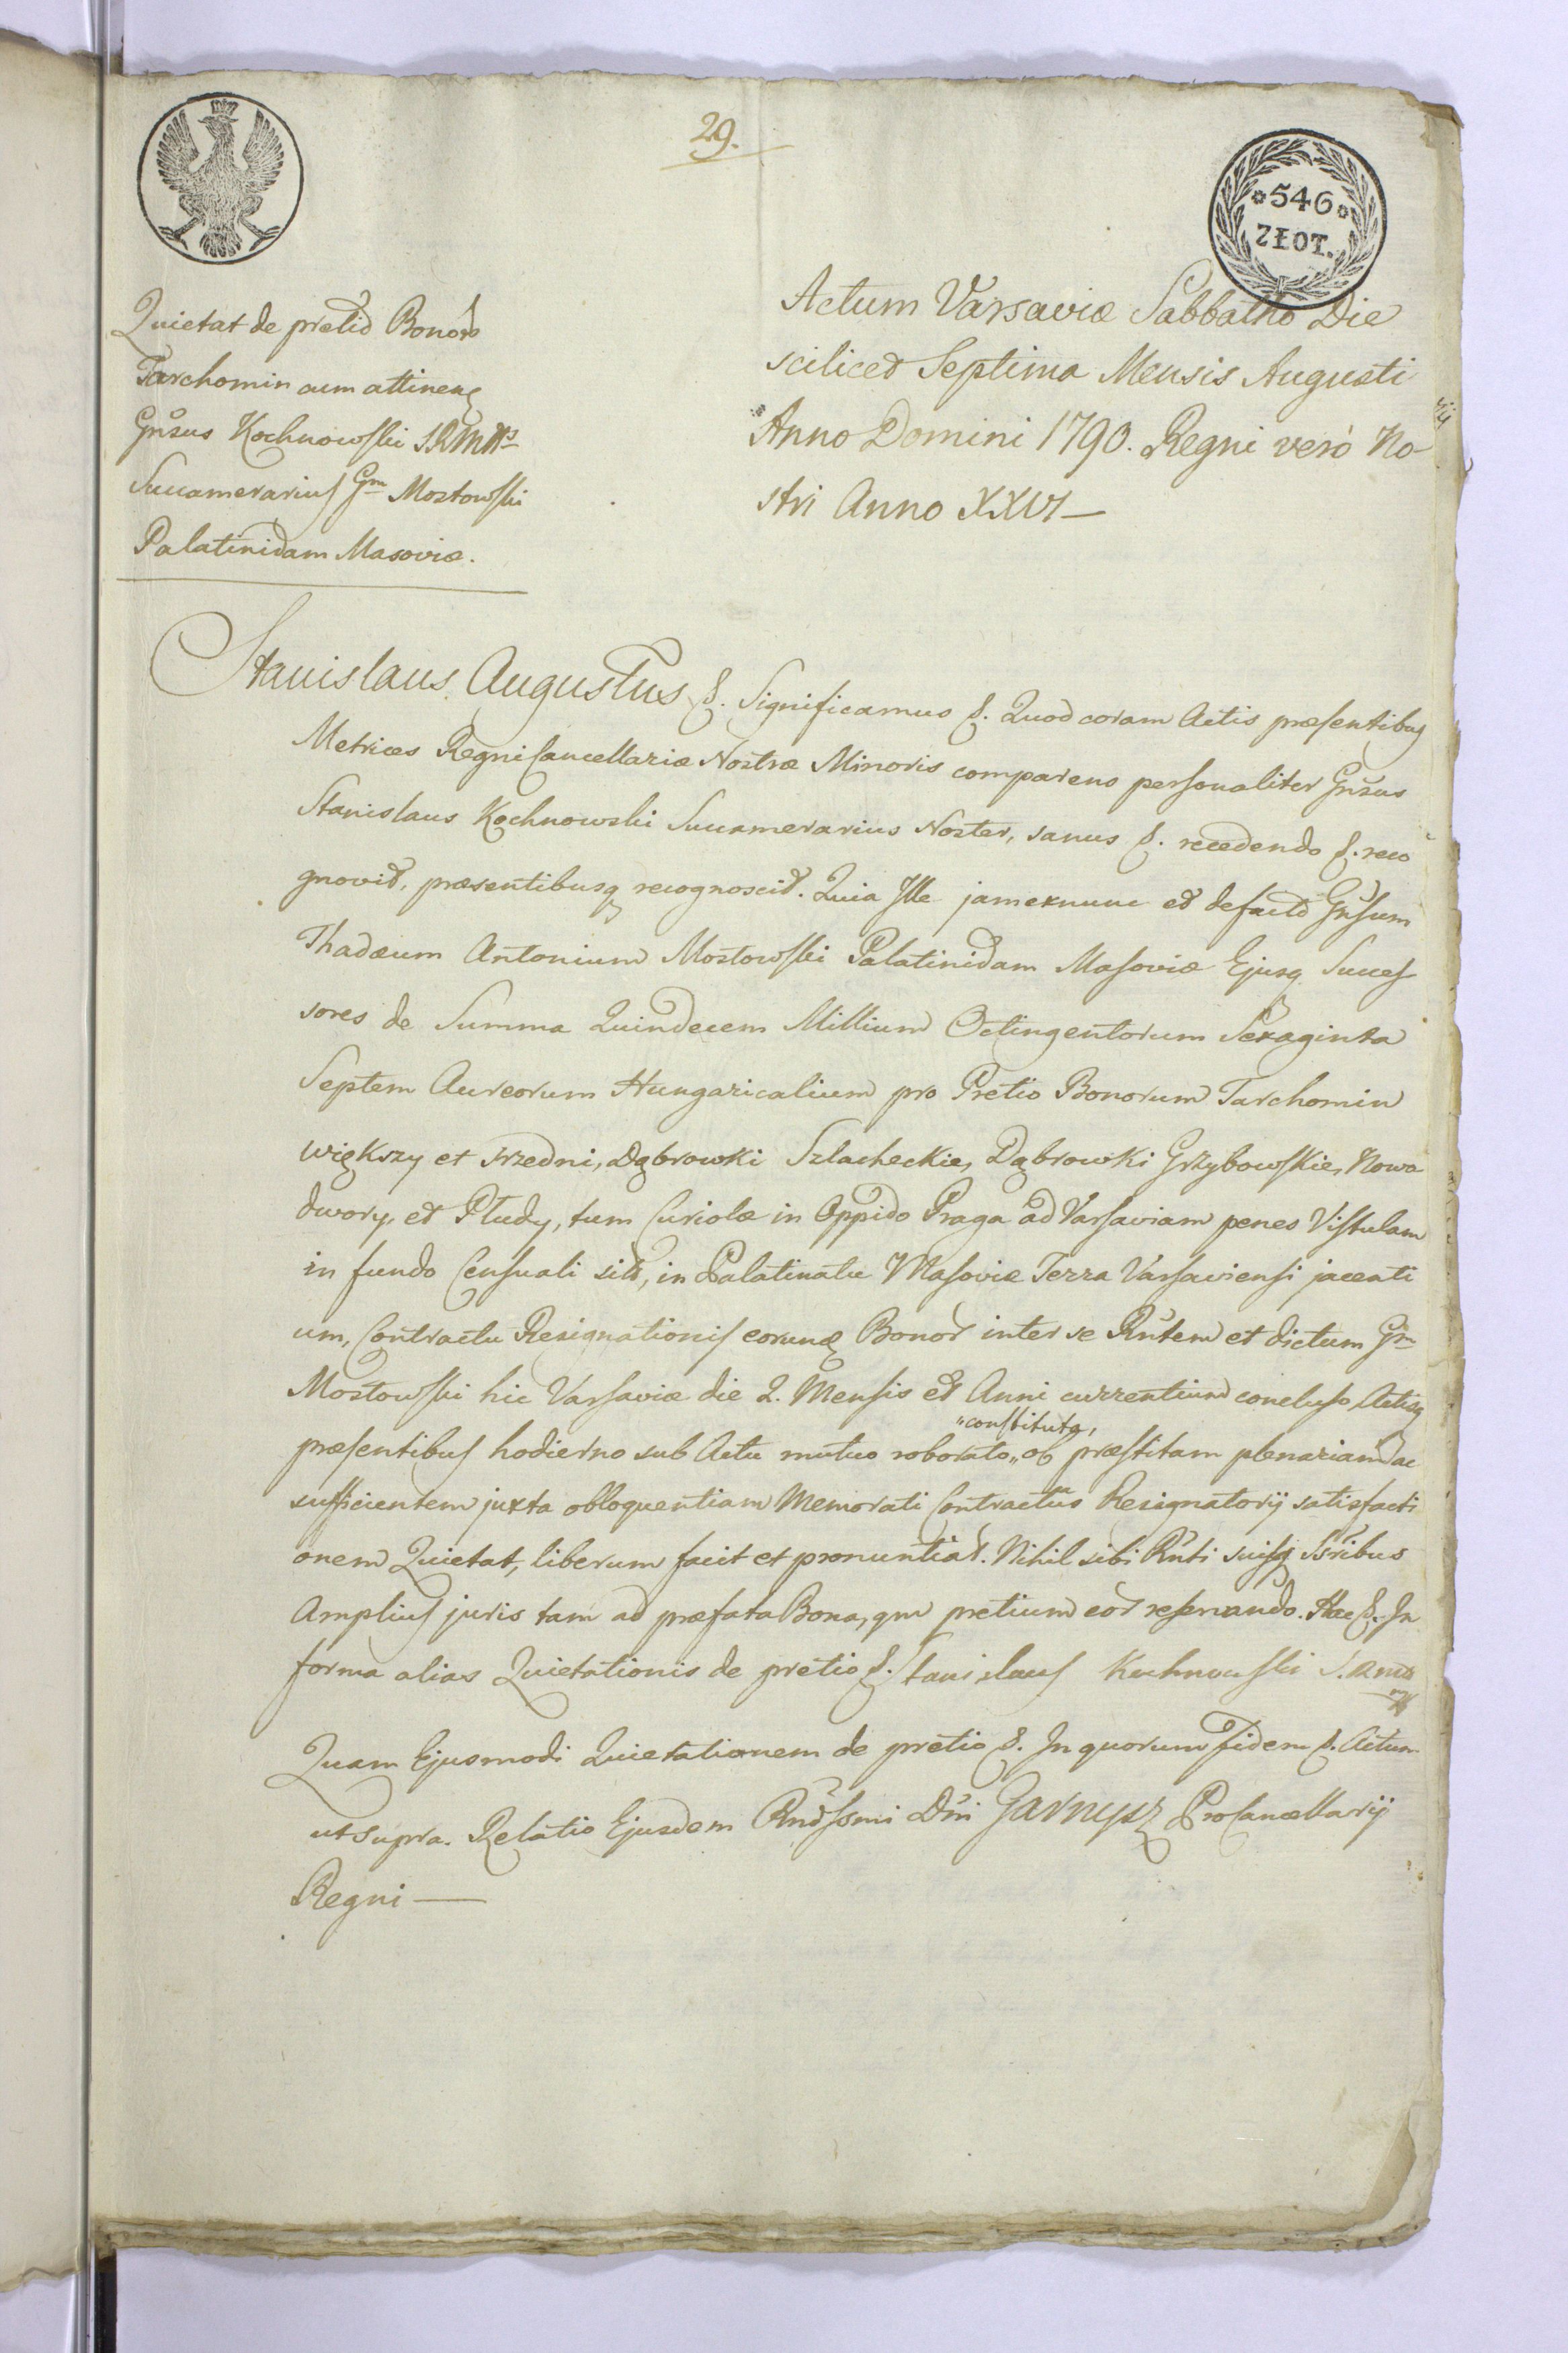 29.
546
ZŁOT.
Quietat de pretio Bonor
Tarchomin cum attinen
Gnsus Kochnowski S.R.Mttis
Succamerarius Gm Mostowski
Palatinidam Masoviæ.
Actum Varsaviæ Sabbatho Die
scilicet Septima Mensis Augusti
Anno Domini 1790. Regni verò No-
stri Anno XXVI
Stanislaus Augustus &. Significamus &. Quod coram Actis præsentibus
Metrices Regni Cancellariæ Nostræ Minoris comparens personaliter Gnsus
Stanislaus Kochnowski Succamerarius Noster, sanus &. recedendo &. reco
gnovit, præsentibusq recognoscit. Quia Ille jamexnunc et defacto Gnsum
Thadæum Antonium Mostowski Palatinidam Masoviæ Ejusq Succes
sores de Summa Quindecem Millium Octingentorum Sexaginta
Septem Aureorum Hungaricalium pro Pretio Bonorum Tarchomin
większy et srzedni, Dąbrowki Szlacheckie, Dąbrowki Grzybowskie, Nowo
dwory, et Płudy, tum Curiolæ in Oppido Praga ad Varsaviam penes Vistulam
in fundo Censuali sit, in Palatinatu Masoviæ Terra Varsaviensi jacenti
um, Contractu Resignationis eorund Bonor inter se Rntem et dictum Gm
Mostowski hic Varsaviæ die 2. Mensis et Anni currentium concluso Actisq
"constituta,
præsentibus hodierno sub Actu mutuo roborato,, ob præstitam plenariam ac
sufficientem juxta obloquentiam Memorati Contractus Resignatorij satisfacti
onem Quietat, liberum facit et pronuntiat. Nihil sibi Rnti suisq Ssribus
Amplius juris tam ad præfata Bona, qm pretium eor reservando. Hæc &. In
forma alias Quietationis de pretio &. Stanislaus Kochnowski S.
Quam Ejusmodi Quietationem de pretio &. In quorum fidem &. Actum
ut supra. Relatio Ejusdem Rndssmi Dni Garnysz ProCancellarij
Regni